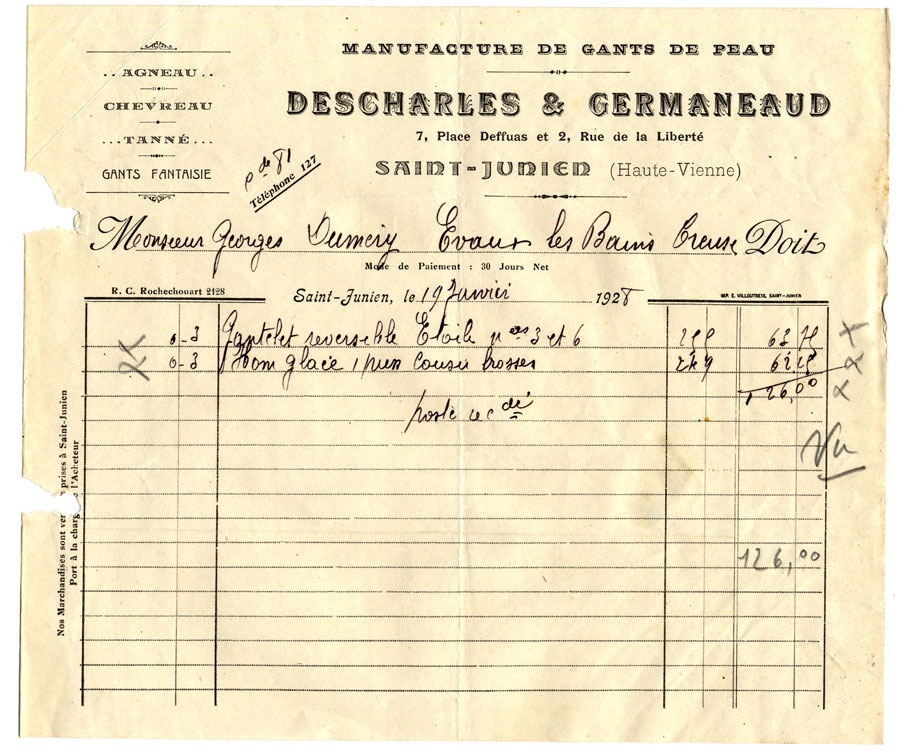 MANUFACTURE DE GANTS DE PEAU
..AGNEAU..
CHEVREAU
...TANNÉ...
GANTS FANTAISIE
DESCHARLES & GERMANEAUD
7, Place Deffuas et 2, Rue de la Liberté
SAINT-JUNIEN (Haute-Vienne)
Téléphone 127
Monsieur Georges Dumery Evaux les Bains Creuse Doit
Mode de Paiement : 30 Jours Net
R. C. Rochechouart 2128
Saint-Junien, le 19 Janvier 1928
IMP. E. VILLOUTREIX, SAINT-JUNIEN
0-3 Gantelet reversible Etoile nos 3 et 6 63 75
0-3 glacé cousu brosses 249 62 25
126,00
Vu
126,00
Nos Marchandises sont prises à Saint-Junien
Port à la l'Acheteur